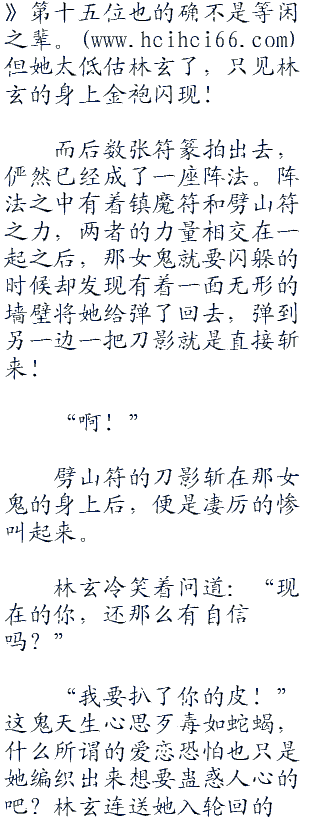 》第十五位也的确不是等闲
之辈。(www.hcihci66.com)
但她太低估林玄了，只见林
玄的身上金袍闪现！
而后数张符篆拍出去，
俨然已经成了一座阵法。阵
法之中有着镇魔符和劈山符
之力，两者的力量相交在一
起之后，那女鬼就要闪躲的
时候却发现有着一面无形的
墙壁将她给弹了回去，弹到
另一边一把刀影就是直接斩
来！
“啊！”
劈山符的刀影斩在那女
鬼的身上后，便是凄厉的惨
叫起来。
林玄冷笑着问道：“现
在的你，还那么有自信
吗？”
“我要扒了你的皮！”
这鬼天生心思歹毒如蛇蝎，
什么所谓的爱恋恐怕也只是
她编织出来想要蛊惑人心的
吧？林玄连送她入轮回的